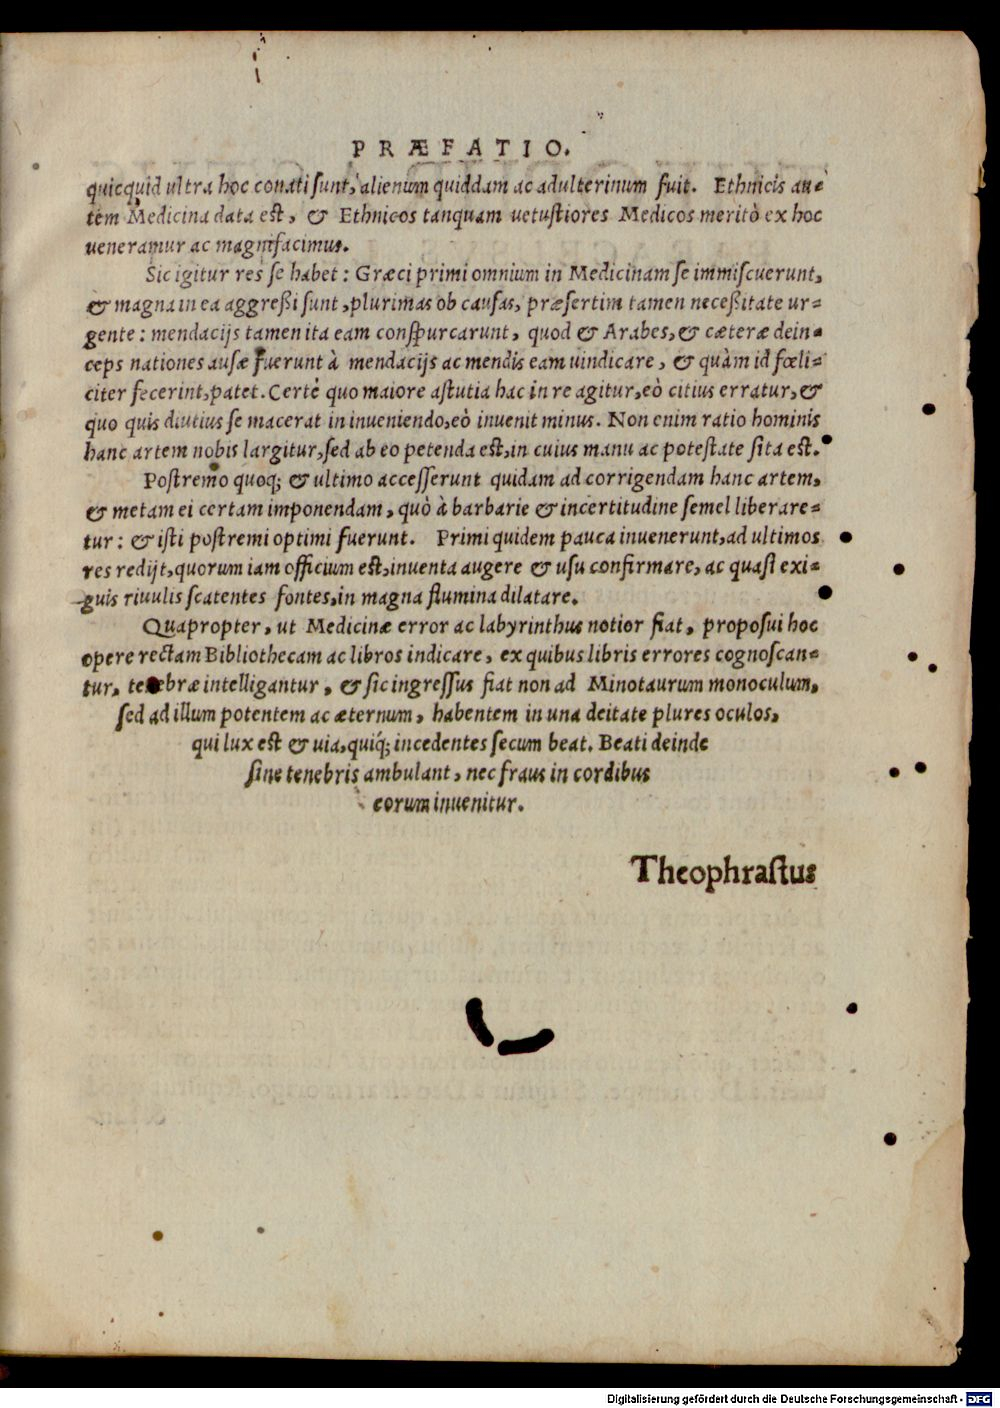 PRÆFATIO.
quicquid ultra hoc conati sunt, alienum quiddam ac adulterinum fuit. Ethnicis au=
tem Medicina data est, & Ethnicos tanquam uetustiores Medicos meritò ex hoc
ueneramur ac magnifacimus.
Sic igitur res se habet: Græci primi omnium in Medicinam se immiscuerunt,
& magna in ea aggreßi sunt, plurimas ob causas, præsertim tamen neceßitate ur=
gente: mendacijs tamen ita eam conspurcarunt, quod & Arabes, & cæteræ dein=
ceps nationes ausæ fuerunt à mendacijs ac mendis eam uindicare, & quàm id fœli=
citer fecerint, patet. Certè quo maiore astutia hac in re agitur, eò citius erratur, &
quo quis diutius se macerat in inueniendo, eò inuenit minus. Non enim ratio hominis
hanc artem nobis largitur, sed ab eo petenda est, in cuius manu ac potestate sita est.
Postremo quoq; & ultimo accesserunt quidam ad corrigendam hanc artem,
& metam ei certam imponendam, quò à barbarie & incertitudine semel liberare=
tur: & isti postremi optimi fuerunt. Primi quidem pauca inuenerunt, ad ultimos
res redijt, quorum iam officium est, inuenta augere & usu confirmare, ac quasi exi=
guis riuulis scatentes fontes, in magna flumina dilatare.
Quapropter, ut Medicinæ error ac labyrinthus notior fiat, proposui hoc
opere rectam Bibliothecam ac libros indicare, ex quibus libris errores cognoscan=
tur, tenebræ intelligantur, & sic ingressus fiat non ad Minotaurum monoculum,
sed ad illum potentem ac æternum, habentem in una deitate plures oculos,
qui lux est & uia, quiq́; incedentes secum beat. Beati deinde
sine tenebris ambulant, nec fraus in cordibus
eorum inuenitur.
Theophrastus
Digitalisierung gefördert durch die Deutsche Forschungsgemeinschaft - DFG